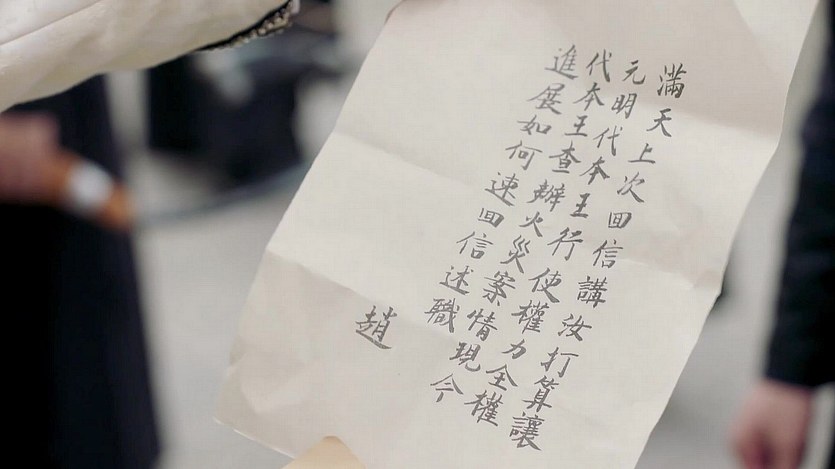 滿天上次回信講汝打算讓
元明代本王行使權力全權
代本王查辦火災案情現今
進展如何速回信述職
趙